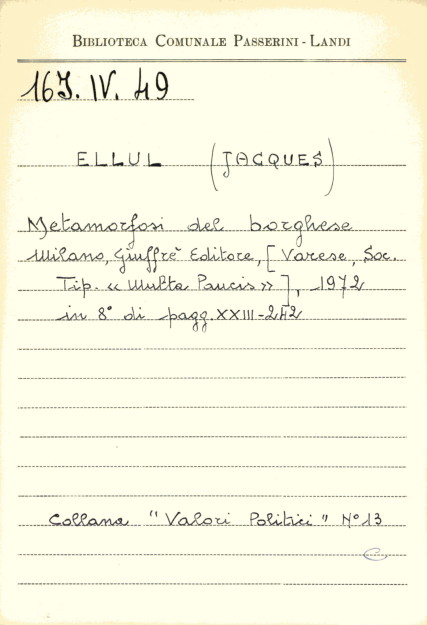 BIBLIOTECA COMUNALE PASSERINI - LANDI
16J. IV. 49
ELLUL (JACQUES)
Metamorfosi del borghese
Milano, Giuffrè Editore, [Varese, Soc.
Tip. « Multa Paucis » ], 1972
in 8° di pagg. XXIII-242
Collana "Valori Politici" N° 13
C